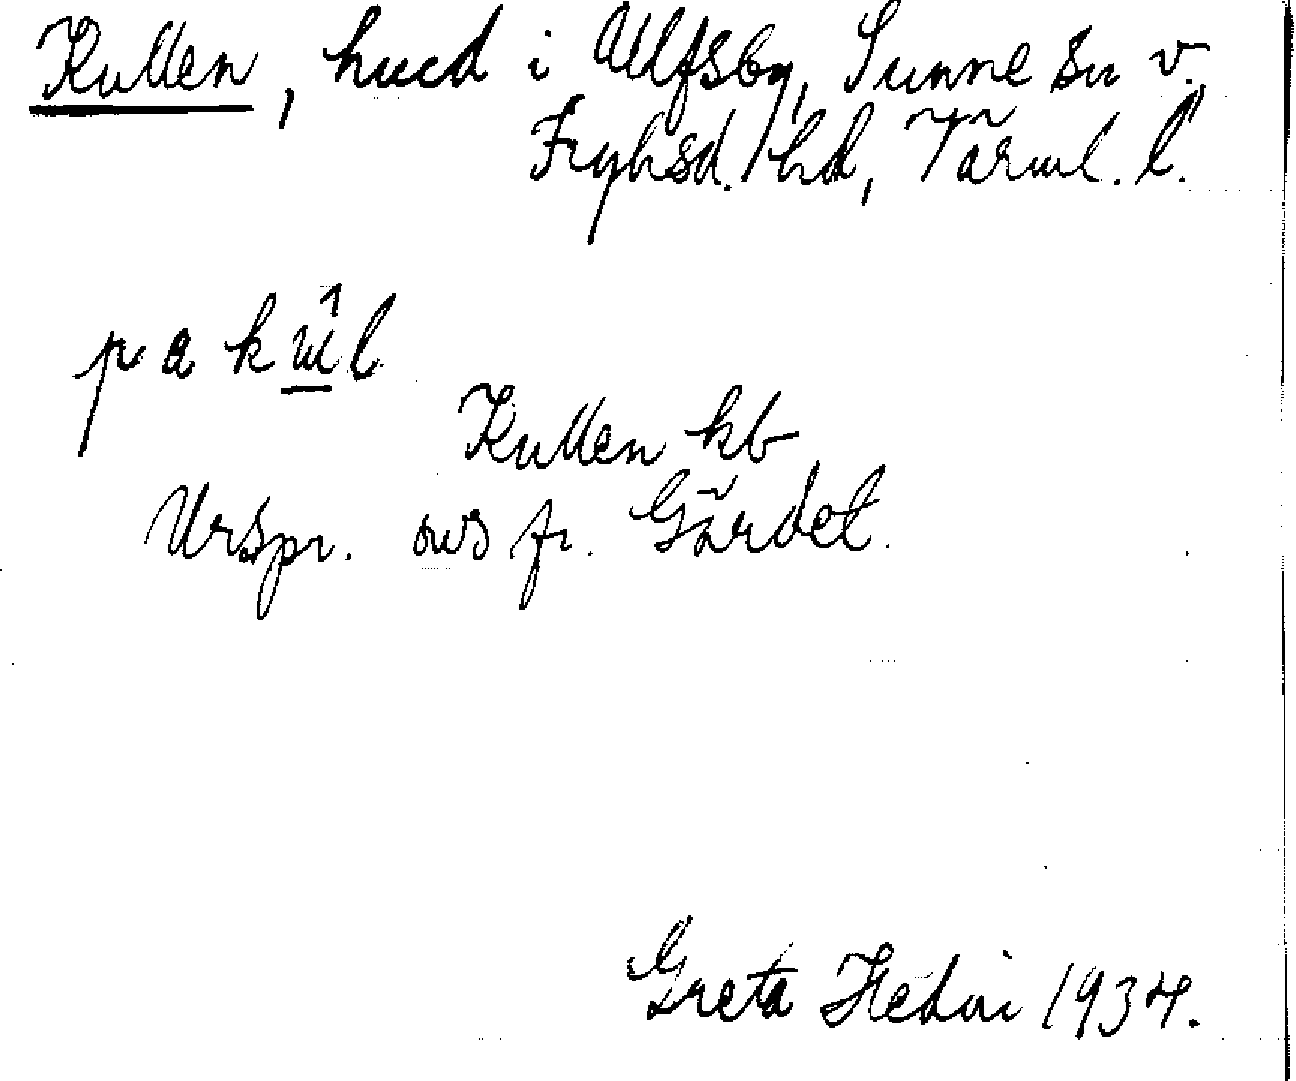 Kullen, hucd i Ulfsby, Sunne sn v.
Fryksd. hd, Värml. l.
på
Kullen kb
Urspr. avs fr. Gärdet.
Greta Hedin 1934.